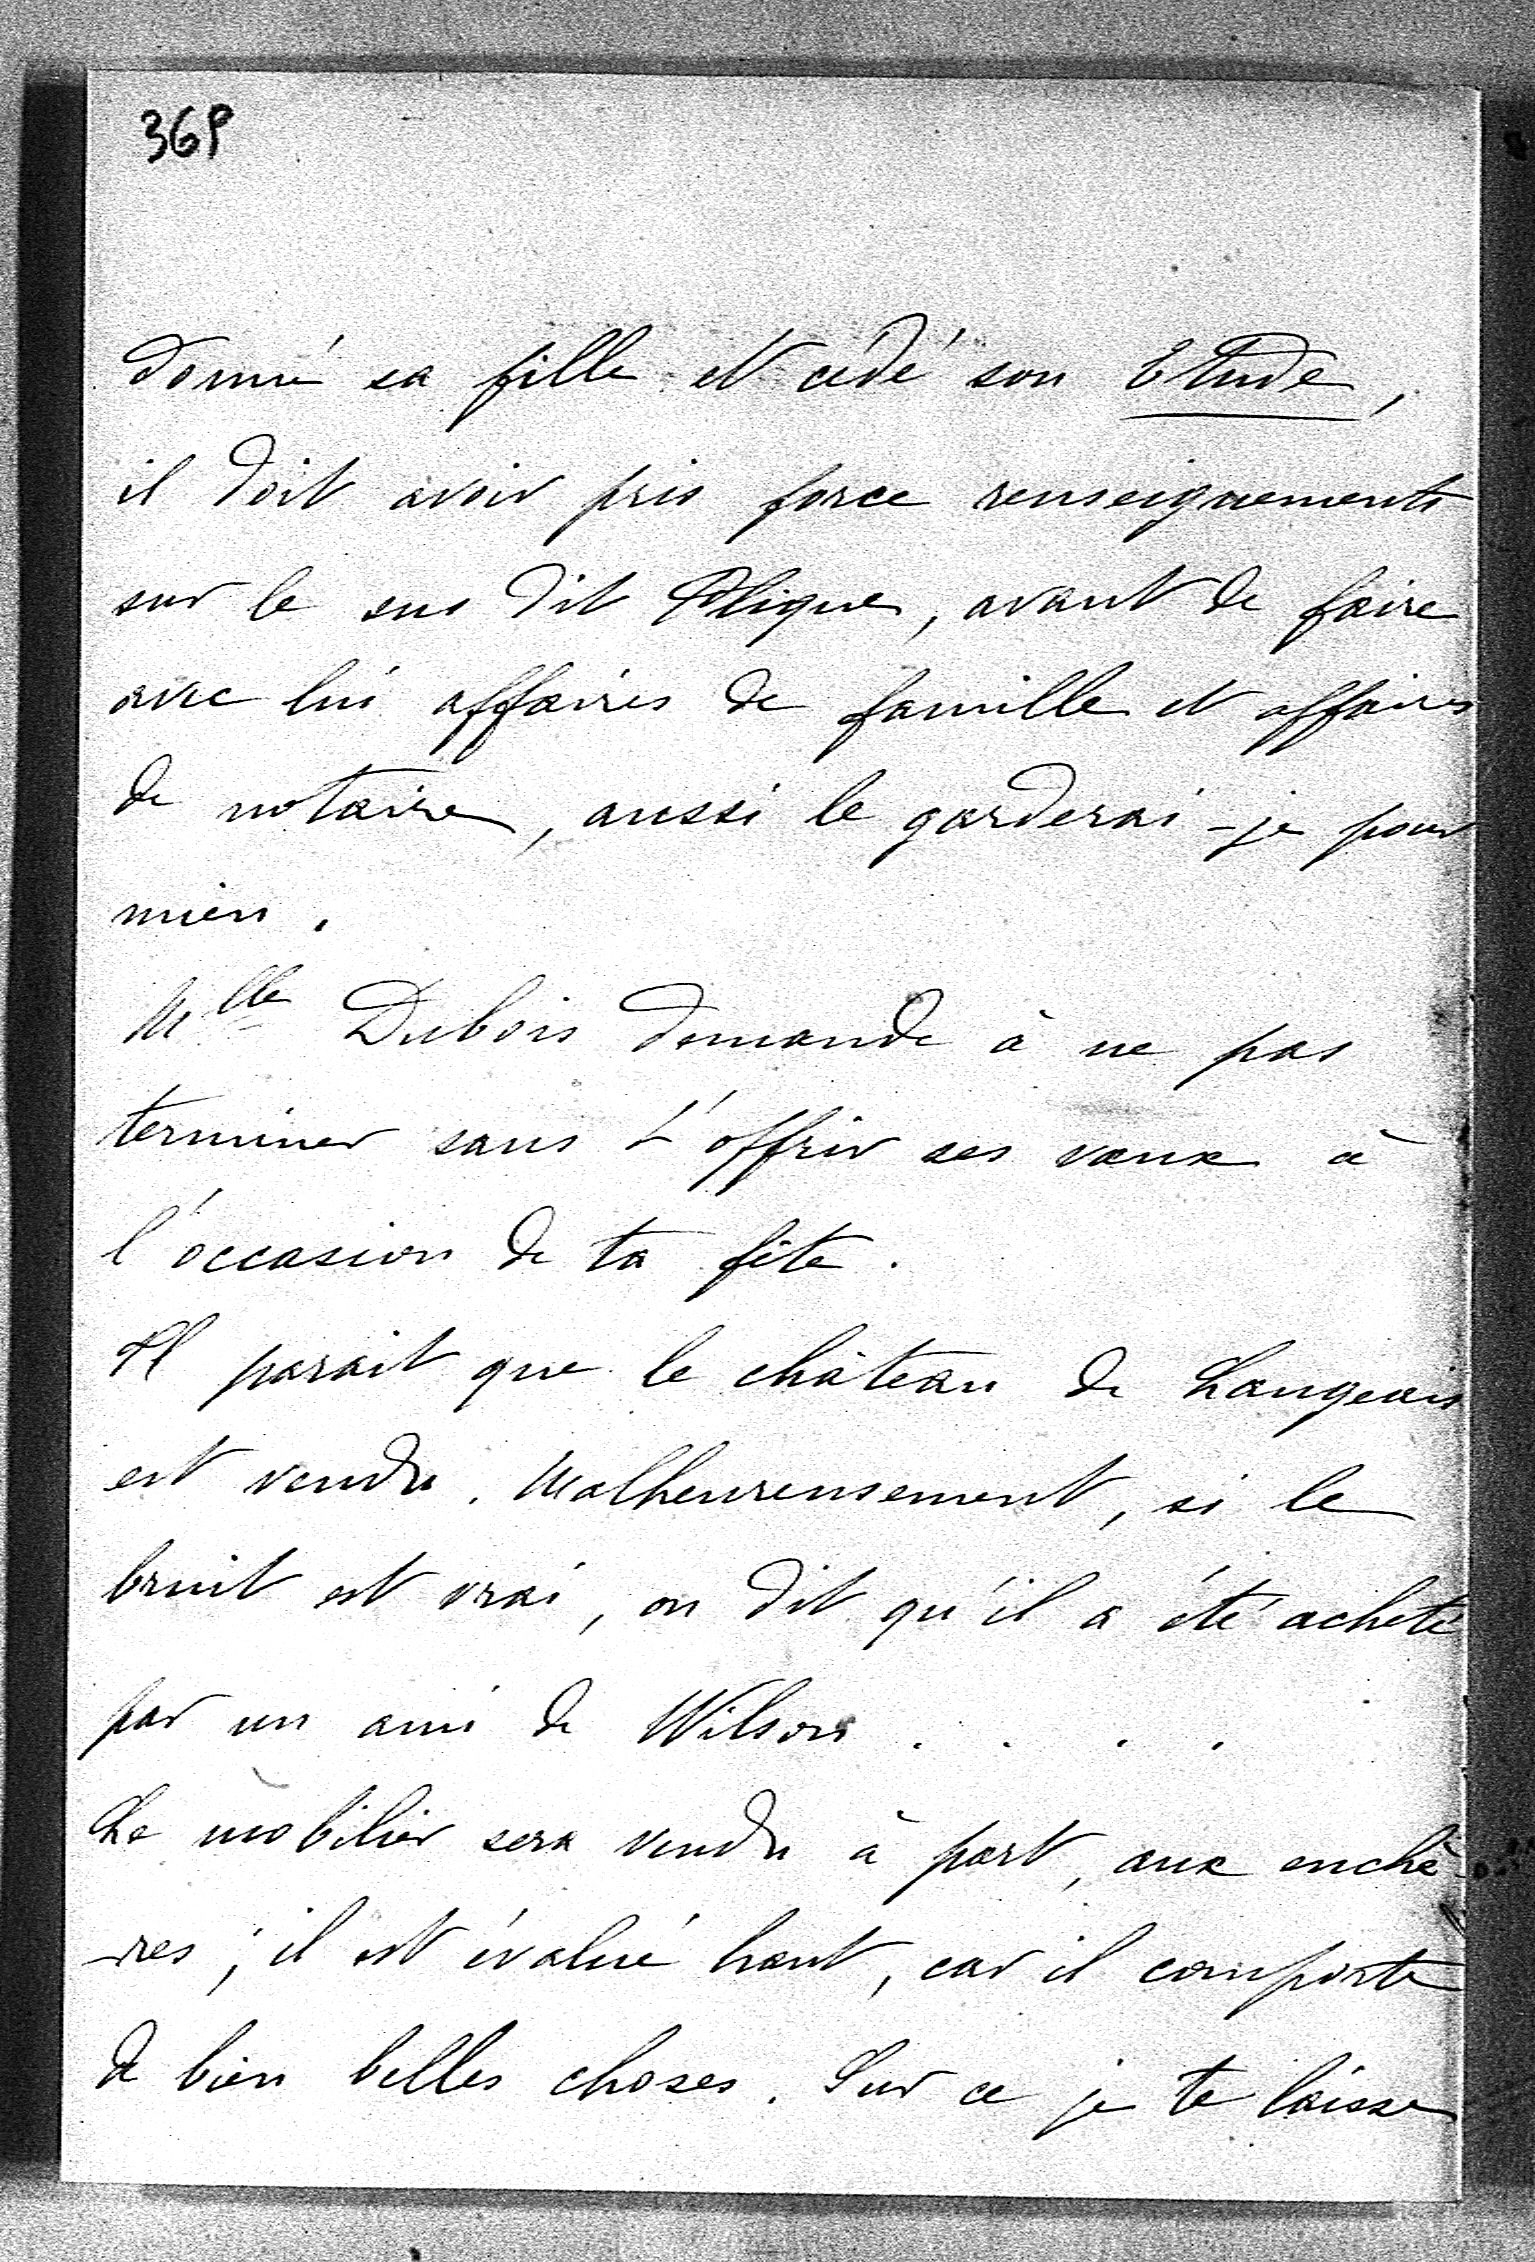 369
donné sa fille et cédé son Etude,
il doit avoir pris force renseignements
sur le sus dit Plique, avant de faire
avec lui affaires de famille et affaires
de notaire, aussi le garderai-je pour
mien.
Mlle Dubois demande à ne pas
terminer sans t'offrir ses vœux à
l'occasion de ta fête.
Il parait que le château de Langeais
est vendu. Malheureusement, si le
bruit est vrai, on dit qu'il a été acheté
par un ami de Wilson . . . .
Le mobilier sera vendu à part, aux enchè-
-res ; il est évalué haut, car il comporte
de bien belles choses. Sur ce je te laisse